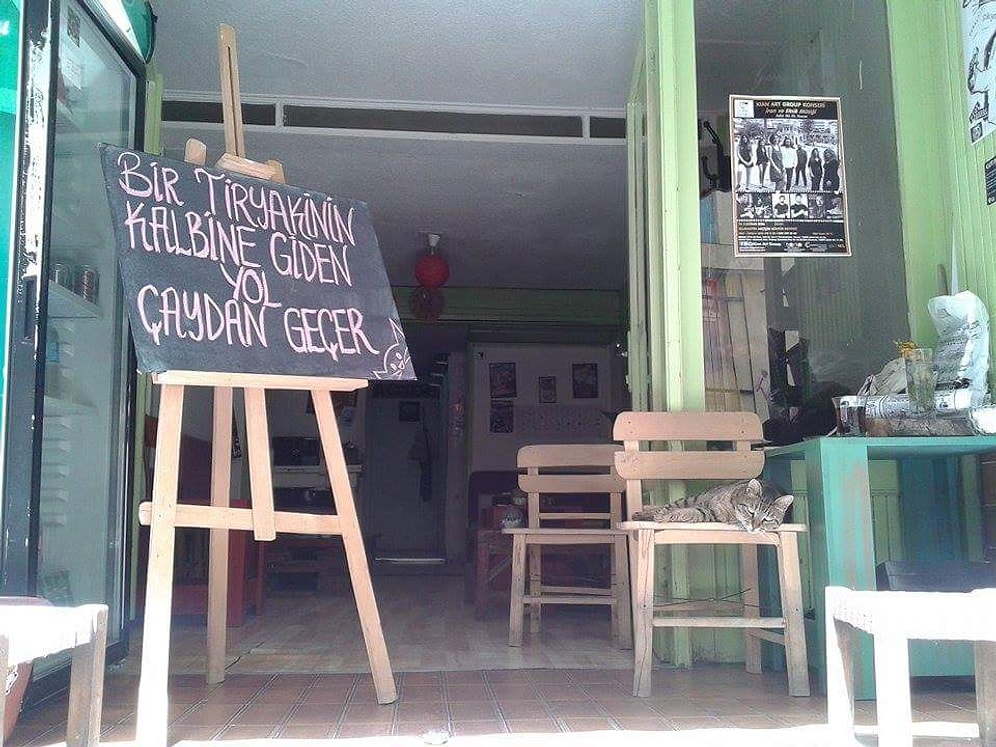 BİR TİRYAKİNİN
KALBİNE GİDEN
YOL
ÇAYDAN GEÇER
KIAN ART GROUP KONSERİ
İran ve Etnik Müziği